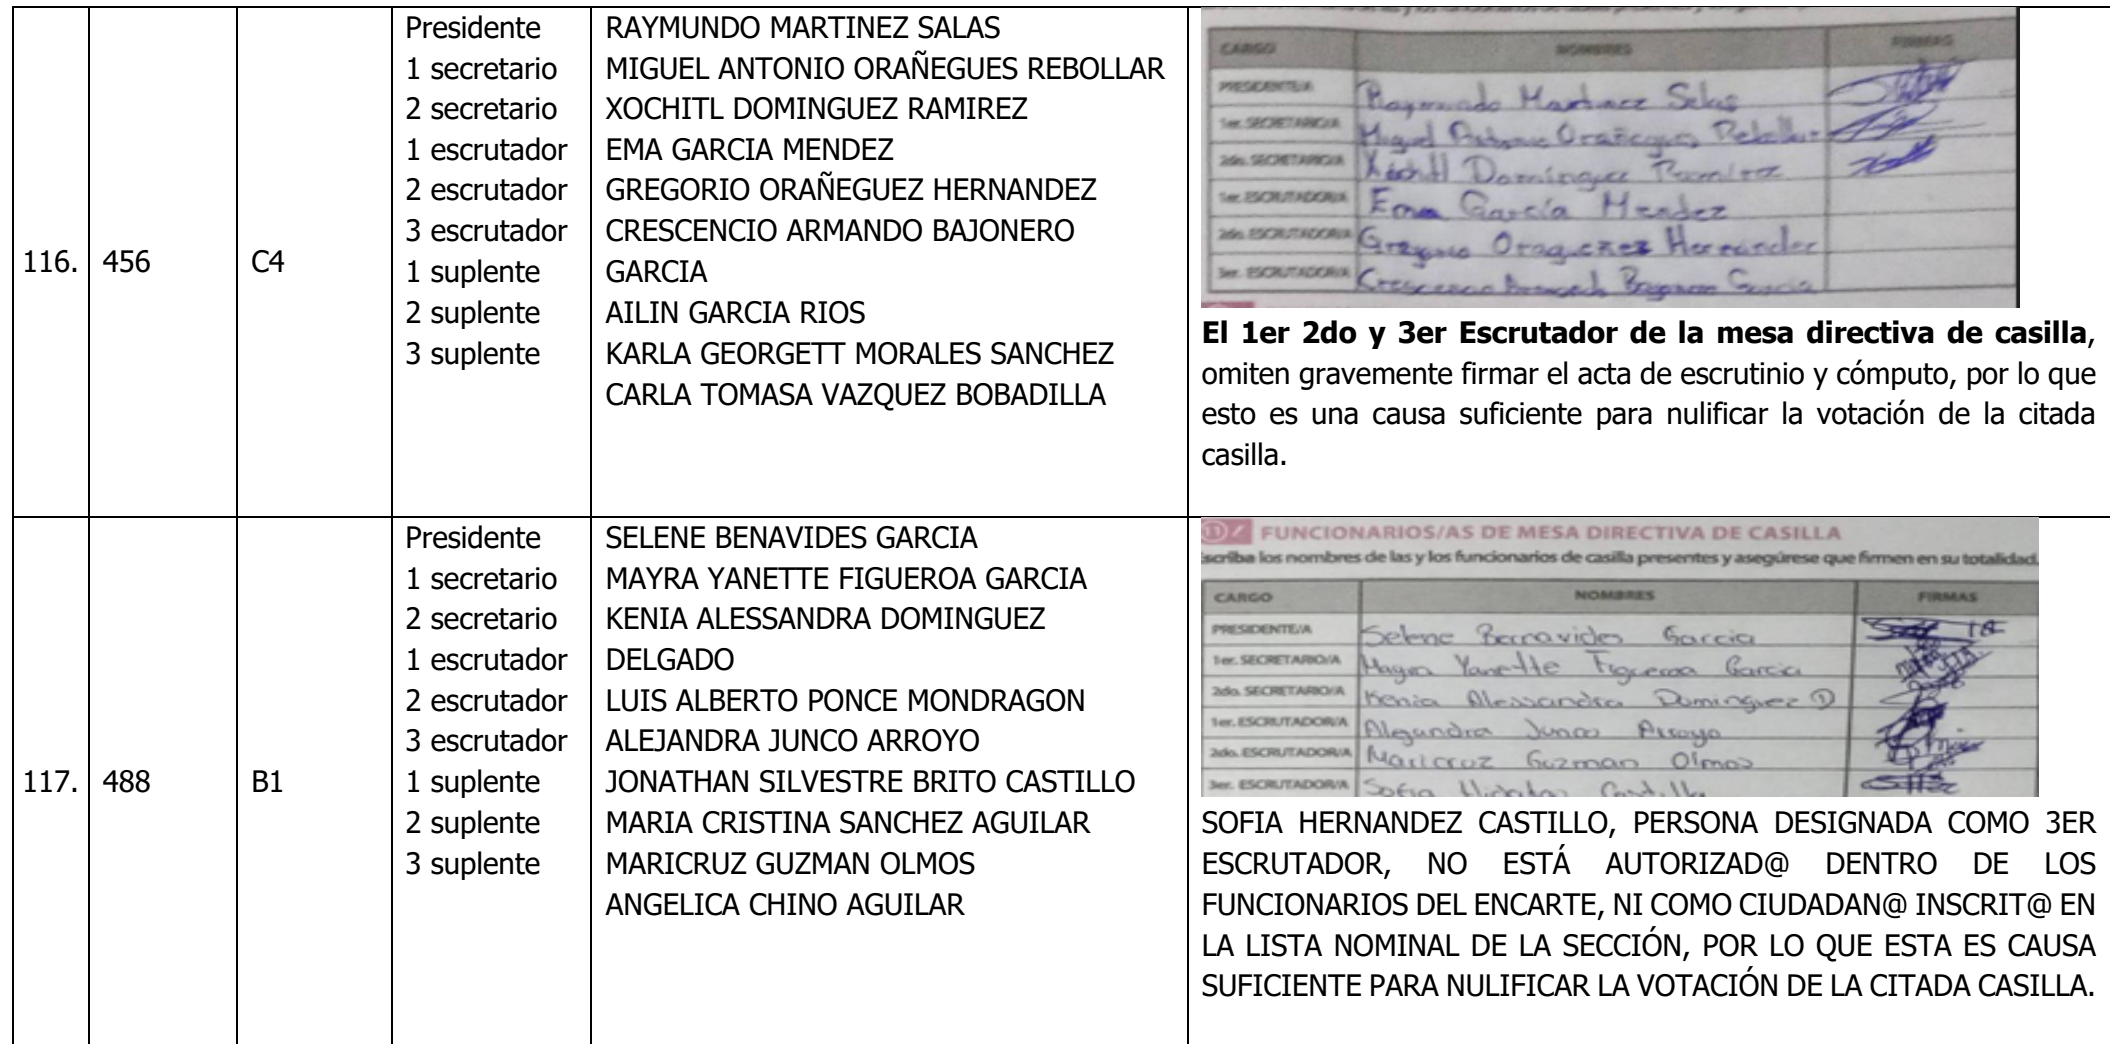 116.
456
C4
Presidente
1 secretario
2 secretario
1 escrutador
2 escrutador
3 escrutador
1 suplente
2 suplente
3 suplente
RAYMUNDO MARTINEZ SALAS
MIGUEL ANTONIO ORAÑEGUES REBOLLAR
XOCHITL DOMINGUEZ RAMIREZ
EMA GARCIA MENDEZ
GREGORIO ORAÑEGUEZ HERNANDEZ
CRESCENCIO ARMANDO BAJONERO
GARCIA
AILIN GARCIA RIOS
KARLA GEORGETT MORALES SANCHEZ
CARLA TOMASA VAZQUEZ BOBADILLA
CARGO NOMBRES FIRMAS
PRESIDENTE/A Raymundo Martinez Salas
1er. SECRETARIO/A Miguel Antonio Orañegues Rebollar
2do. SECRETARIO/A Xóchitl Domínguez Ramírez
1er. ESCRUTADOR/A Ema García Mendez
2do. ESCRUTADOR/A Gregorio Hernandez
3er. ESCRUTADOR/A Crescencio Armando Garcia
El 1er 2do y 3er Escrutador de la mesa directiva de casilla,
omiten gravemente firmar el acta de escrutinio y cómputo, por lo que
esto es una causa suficiente para nulificar la votación de la citada
casilla.
117.
488
B1
Presidente
1 secretario
2 secretario
1 escrutador
2 escrutador
3 escrutador
1 suplente
2 suplente
3 suplente
SELENE BENAVIDES GARCIA
MAYRA YANETTE FIGUEROA GARCIA
KENIA ALESSANDRA DOMINGUEZ
DELGADO
LUIS ALBERTO PONCE MONDRAGON
ALEJANDRA JUNCO ARROYO
JONATHAN SILVESTRE BRITO CASTILLO
MARIA CRISTINA SANCHEZ AGUILAR
MARICRUZ GUZMAN OLMOS
ANGELICA CHINO AGUILAR
13 FUNCIONARIOS/AS DE MESA DIRECTIVA DE CASILLA
Escriba los nombres de las y los funcionarios de casilla presentes y asegúrese que firmen en su totalidad.
CARGO NOMBRES FIRMAS
PRESIDENTE/A Selene Benavides Garcia
1er. SECRETARIO/A Mayra Yanette Figueroa Garcia
2do. SECRETARIO/A Kenia Alessandra Dominguez D
1er. ESCRUTADOR/A Alejandra Junco Arroyo
2do. ESCRUTADOR/A Maricruz Guzman Olmos
3er. ESCRUTADOR/A Sofia
SOFIA HERNANDEZ CASTILLO, PERSONA DESIGNADA COMO 3ER
ESCRUTADOR, NO ESTÁ AUTORIZAD@ DENTRO DE LOS
FUNCIONARIOS DEL ENCARTE, NI COMO CIUDADAN@ INSCRIT@ EN
LA LISTA NOMINAL DE LA SECCIÓN, POR LO QUE ESTA ES CAUSA
SUFICIENTE PARA NULIFICAR LA VOTACIÓN DE LA CITADA CASILLA.